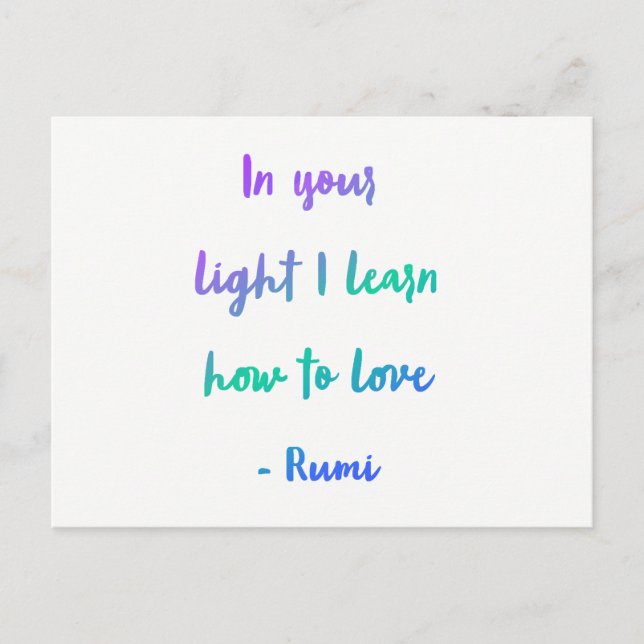 In your
light I learn
how to love
- Rumi